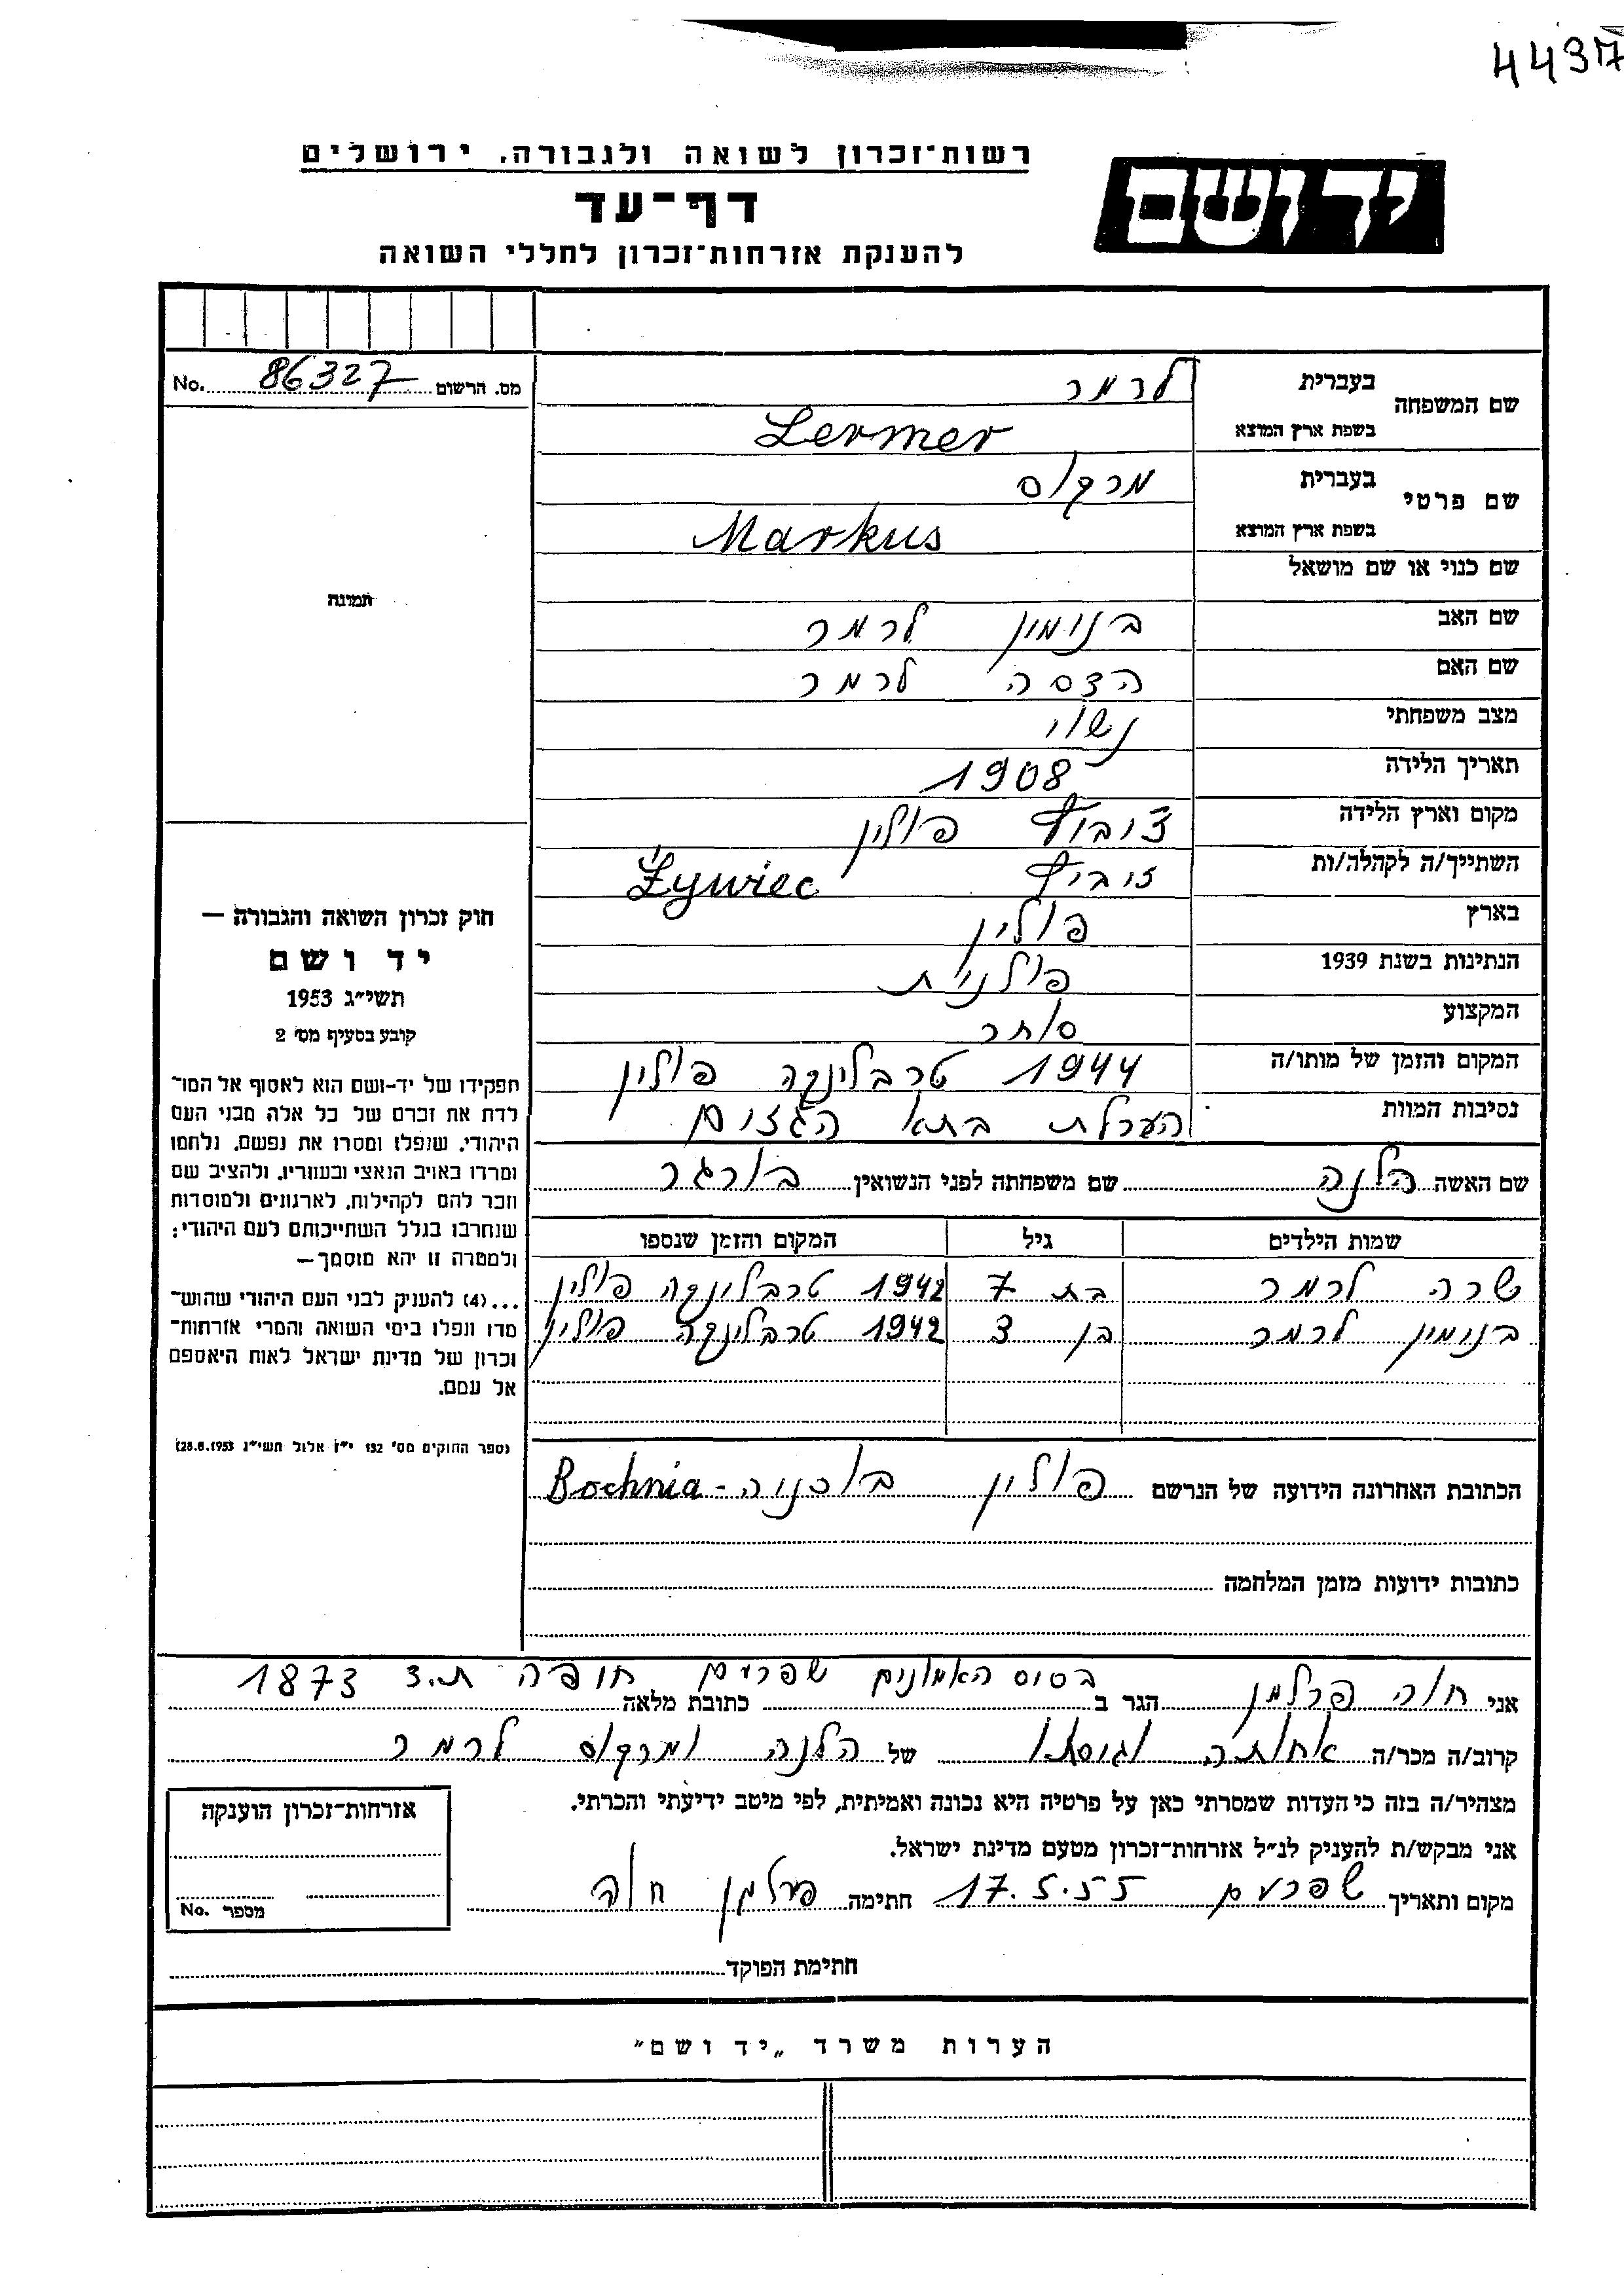 4437
רשות־זכרון לשואה ולגבורה, ירושלים
יד ושם
דף־עד
להענקת אזרחות־זכרון לחללי השואה
No. 86327 מס. הרשום
שם המשפחה בעברית לרמר
בשפת ארץ המוצא Lermer
שם פרטי בעברית מרקוס
בשפת ארץ המוצא Markus
שם כנוי או שם מושאל
תמונה
שם האב בנימין לרמר
שם האם הדסה לרמר
מצב משפחתי נשוי
תאריך הלידה 1908
מקום וארץ הלידה פולין
השתייך/ה לקהלה/ות Żywiec
בארץ פולין
הנתינות בשנת 1939 פולנית
המקצוע סוחר
המקום והזמן של מותו/ה 1944 טרבלינקה פולין
נסיבות המוות הערלת בתא הגזים
שם האשה הלנה שם משפחתה לפני הנשואין בורגר
שמות הילדים גיל המקום והזמן שנספו
שרה לרמר בת 7 1942 טרבלינקה פולין
בנימין לרמר בן 3 1942 טרבלינקה פולין
הכתובת האחרונה הידועה של הנרשם פולין בוכניה - Bochnia
כתובות ידועות מזמן המלחמה
חוק זכרון השואה והגבורה —
יד ושם
תשי״ג 1953
קובע בסעיף מס׳ 2
תפקידו של יד-ושם הוא לאסוף אל המו־
לדת את זכרם של כל אלה מבני העם
היהודי, שנפלו ומסרו את נפשם, נלחמו
ומרדו באויב הנאצי ובעוזריו, ולהציב שם
וזכר להם לקהילות, לארגונים ולמוסדות
שנחרבו בגלל השתייכותם לעם היהודי;
ולמטרה זו יהא מוסמך—
...(4) להעניק לבני העם היהודי שהוש־
מדו ונפלו בימי השואה והמרי אזרחות־
זכרון של מדינת ישראל לאות היאספם
אל עמם.
(ספר החוקים מס׳ 132 י״ז אלול תשי״ג 28.8.1953)
אני חוה פרלמן הגר ב כתובת מלאה בסיס האמונים שפרעם חופה ת.ד 1873
קרוב/ה מכר/ה אחותה וגיסתו של הלנה ומרקוס לרמר
מצהיר/ה בזה כי העדות שמסרתי כאן על פרטיה היא נכונה ואמיתית, לפי מיטב ידיעתי והכרתי.
אני מבקש/ת להעניק לנ״ל אזרחות־זכרון מטעם מדינת ישראל.
מקום ותאריך שפרעם 17.5.55 חתימה פרלמן חוה
אזרחות־זכרון הוענקה
מספר No.
חתימת הפוקד
הערות משרד „יד ושם״